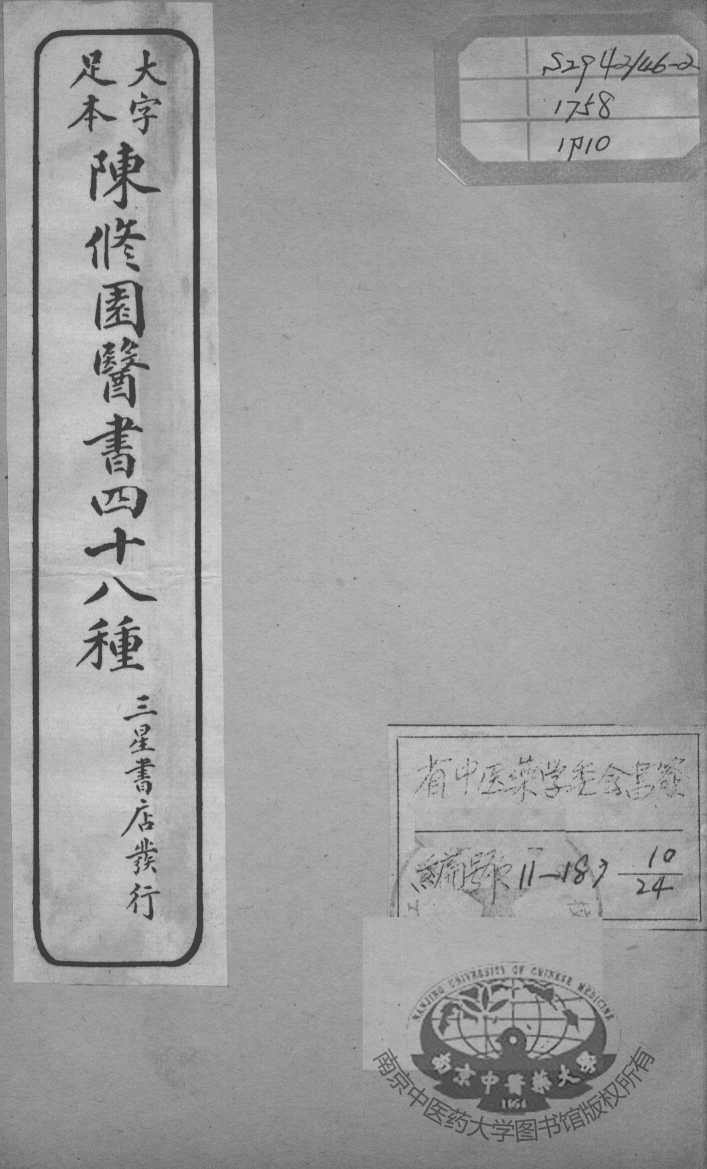 大字
足本
陳修園醫書四十八種
三星書店發行
S2942/46-2
1758
1P10
省中医药学委会
編號 11-187 10/24
NANJING UNIVERSITY OF CHINESE MEDICINE
南京中醫藥大學
1954
南京中医药大学图书馆版权所有